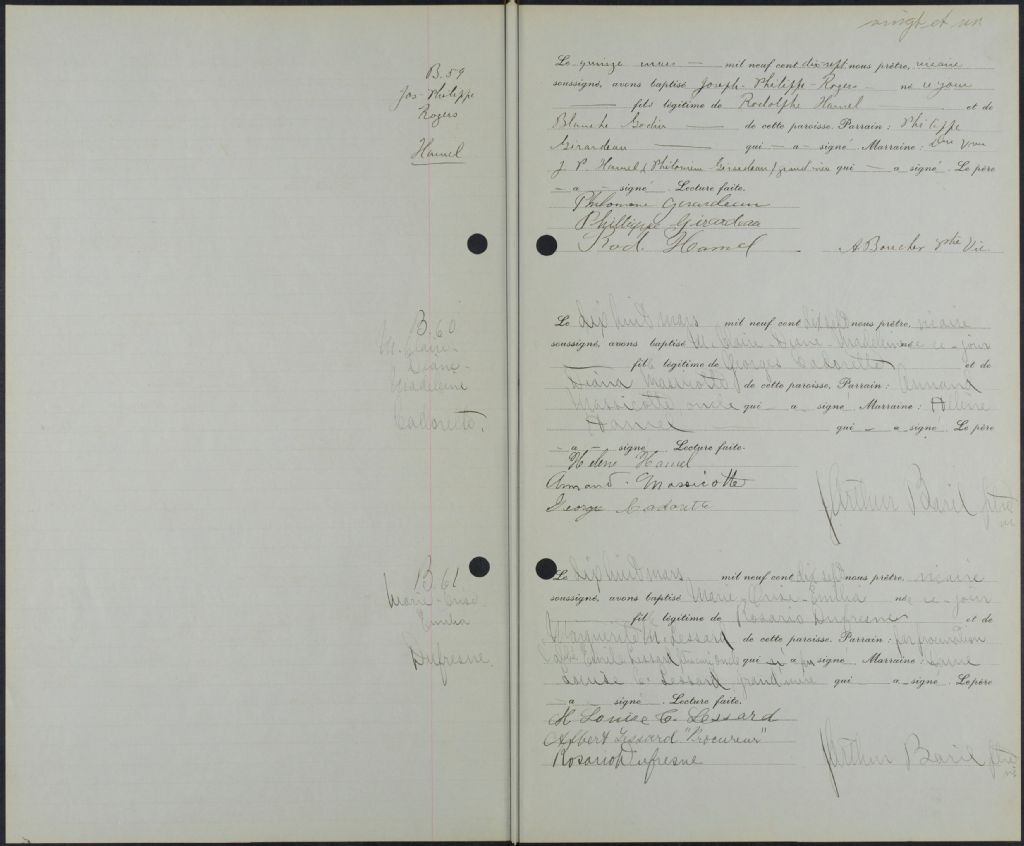 vingt et un
B. 59
Jos-Philippe
Rogers
Hamel
Le quinze mars — mil neuf cent dix-sept nous prêtre, vicaire
soussigné, avons baptisé Joseph-Philippe-Rogers né ce jour
fils légitime de Rodolphe Hamel et de
Blanche Godin — de cette paroisse. Parrain : Philippe
Girardeau — qui — a — signé Marraine :
J. P. Hamel (Philomène Girardeau) grand'mère qui — a signé. Le père
— a — signé. Lecture faite.
Philomène Girardeau
Phillippe Girardeau
Rod. Hamel A Boucher ptre Vic.
B. 60
M. Claire-
Diane-
Madeleine
Cadorette.
Le dix huit mars mil neuf cent dix sept nous prêtre, vicaire
soussigné, avons baptisé M. Claire-Diane-Madeleine née ce-jour
fille légitime de Georges Cadorette et de
Diana Massicotte de cette paroisse. Parrain : Armand
Massicotte oncle qui — a — signé Marraine : Hélène
Hamel qui — a signé. Le père
— a — signé. Lecture faite.
Hélène Hamel
Armand Massicotte
George Cadorette
Arthur Baril ptre
vic
B. 61
Marie-
Emilia
Dufresne.
Le dix huit mars mil neuf cent dix sept nous prêtre, vicaire
soussigné, avons baptisé Marie-Emilia née ce-jour
fille légitime de Rosario Dufresne et de
Marguerite M. Lessard de cette paroisse. Parrain : par procuration
Lessard oncle qui n'a pas signé Marraine : Dame
Louise C. Lessard grand'mère qui — a — signé. Le père
— a — signé. Lecture faite.
M Louise C. Lessard
Albert Lessard "Procureur"
Rosario Dufresne
Arthur Baril ptre
vic